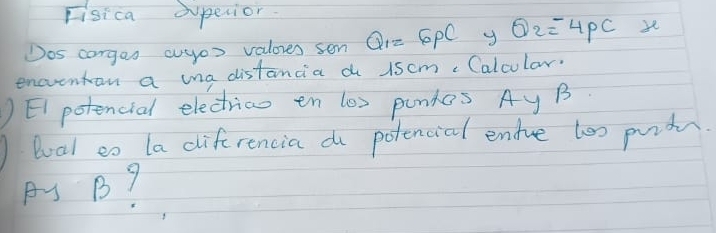 Fisica Superior.
Dos cargas cuyos valores son Q1= 6pC y Q2=-4pC se
encuentran a una distancia de 15cm. Calcular.
) El potencial electrico en los puntos A y B.
) Cual es la diferencia de potencial entre los puntos.
A y B?